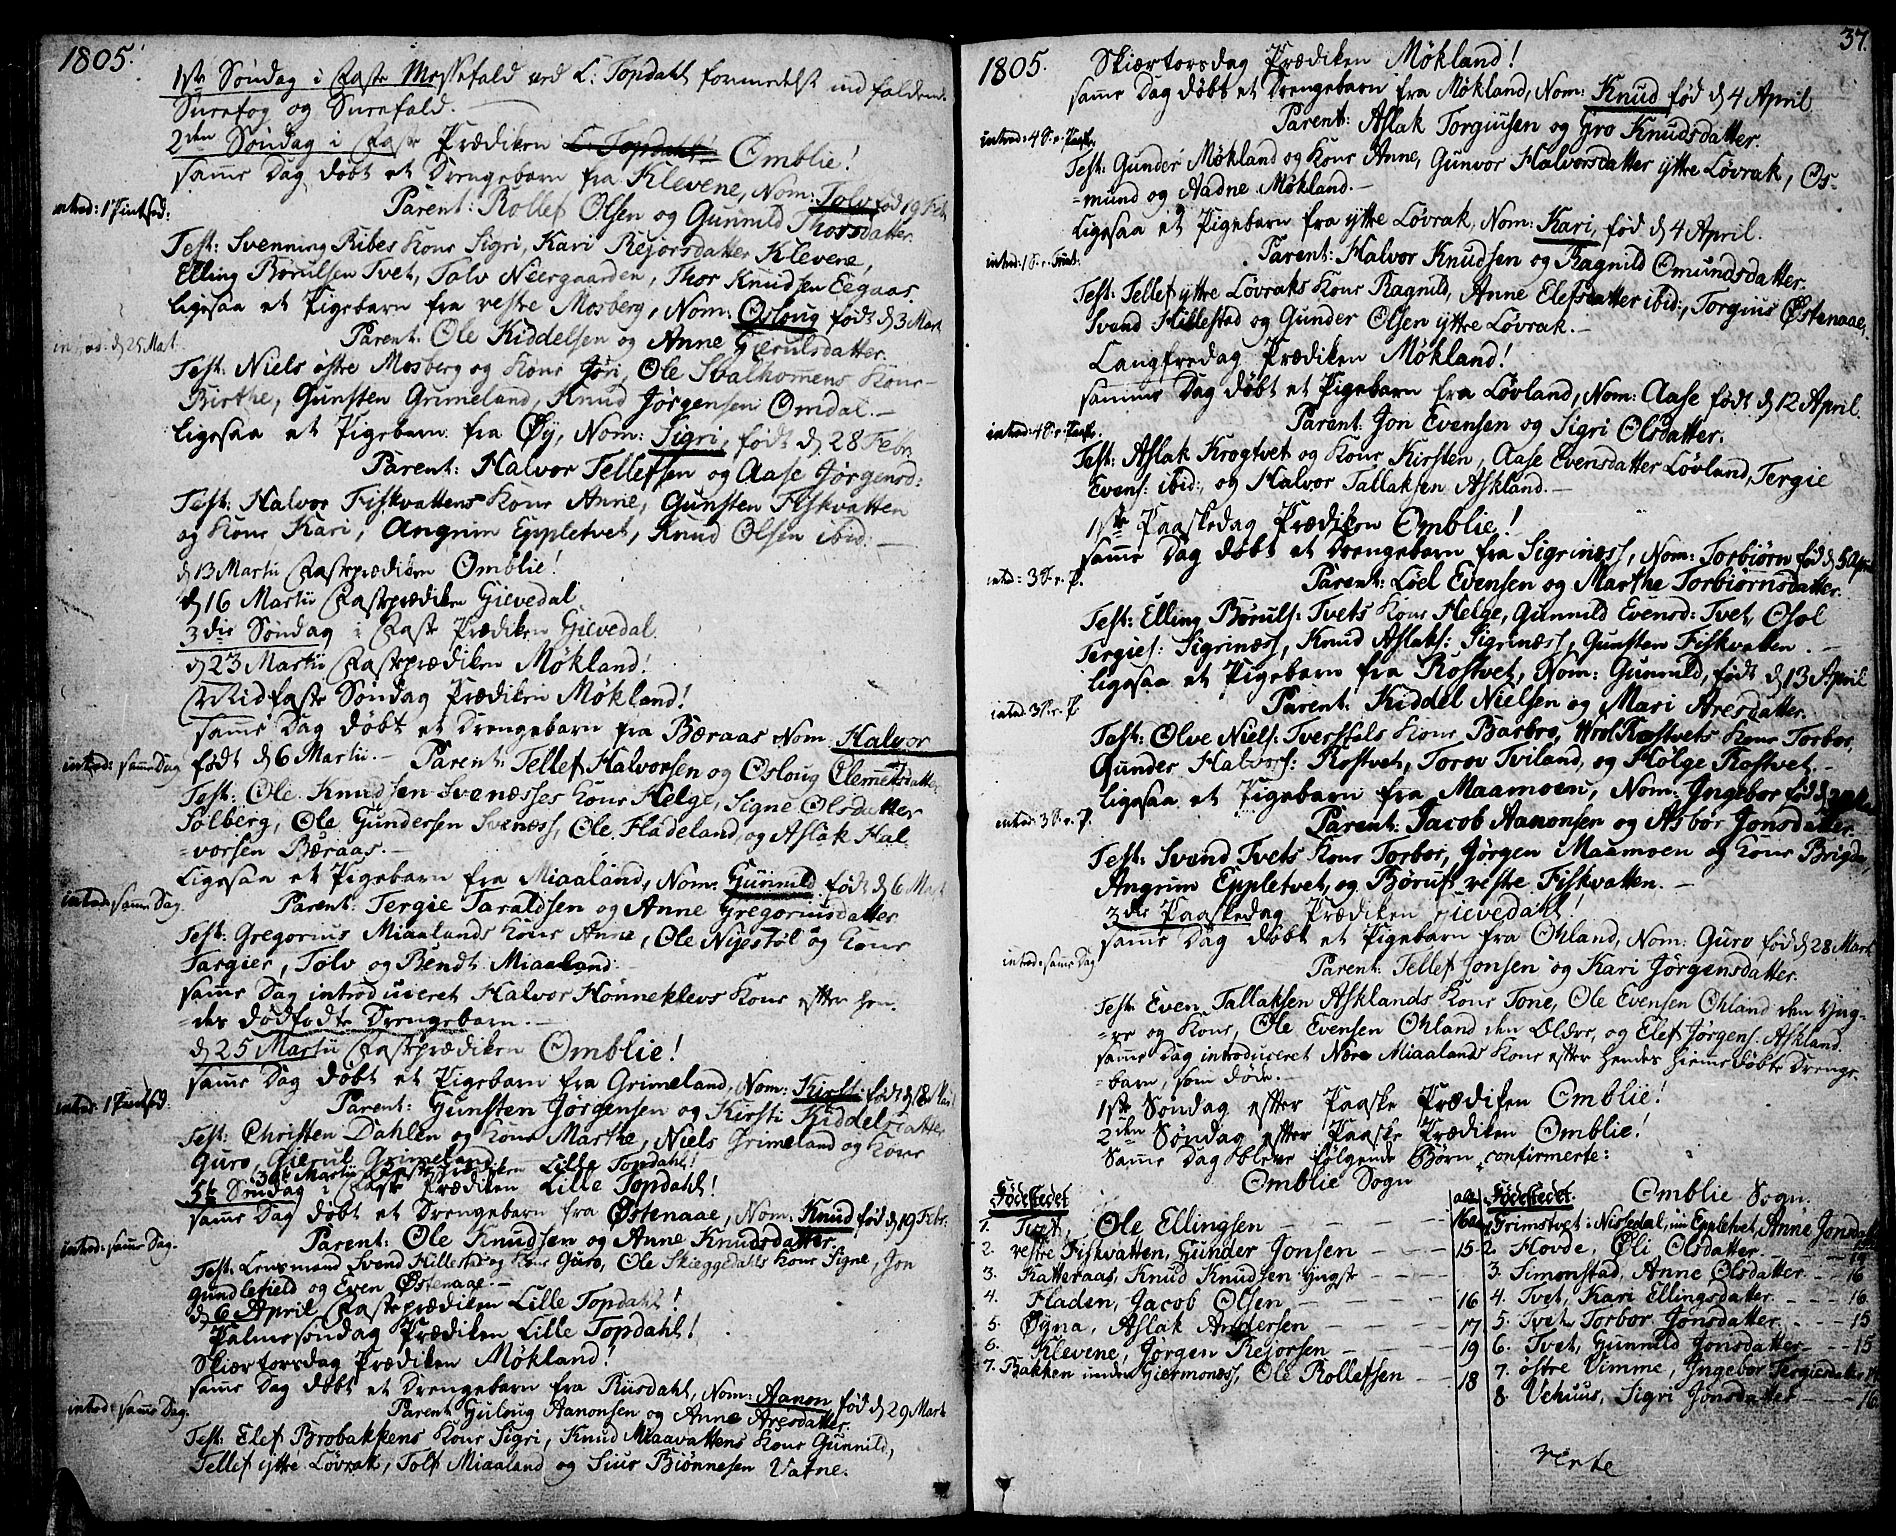 1805.
1ste Søndag i Faste Messefald ved L: Topdahl formedelst ind falden
Snefog og Snefald.
2den Søndag i Faste Prædiken L: Topdahl Omblie!
samme Dag døbt et Drengebarn fra Klevene, Nom: Tolv fød 19 Feb
introd: 1 Pintsed:
Parent: Rollef Olsen og Gunnild Thorsdatter
Test: Svenning Ribes Kone Sigri, Kari Reiorsdatter Klevene,
Elling Børulsen Tvet, Tolv Neergaarden, Thor Knudsen Eegaas.
ligesaa et Pigebarn fra vestre Mosberg, Nom: Osloug født d 3 Mart
introd: d 25 Mart
Parent: Ole Kiddelsen og Anne Gierulsdatter.
Test: Niels østre Mosberg og Kone Jøri, Ole Svalhommens Kone
Birthe, Gunsten Grimeland, Knud Jørgensen Omdal.-
ligesaa et Pigebarn fra Øy, Nom: Sigri, født d 28 Febr.
Parent: Halvor Tellefsen og Aase Jørgensd:
Test: Halvor Fiskvattens Kone Anne, Gunsten Fiskvatten
og Kone Kari, Angrim Eppletvet, Knud Olsen ibid:-
d 13 Martii Fasteprædiken Omblie!
d 16 Martii Fasteprædiken Gievedal
3die Søndag i Faste Prædiken Gievedal.
d 23 Martii Fasteprædiken Møkland!
Midfaste Søndag Prædiken Møkland!
samme Dag døbt et Drengebarn fra Bæraas Nom. Halvor
introd: samme Dag
født d 6 Martii.- Parent: Tellef Halvorsen og Osloug Clemmetsdatter
Test: Ole Knudsen Svenæsses Kone Helge, Signe Olsdatter
Sølberg, Ole Gundersen Svenæss, Ole Fladeland, og Aslak Hal
=vorsen Bæraas.-
ligesaa et Pigebarn fra Miaaland, Nom: Gunnild født d 6 Mart
introd: samme Dag.
Parent: Tergie Taraldsen og Anne Gregoriusdatter
Test: Gregorius Miaalands Kone Anne, Ole Nyestøl og Kone
Targier, Tolv og Bendt Miaaland.
samme Dag introduceret Halvor Hønneklevs Kone efter hen
=des dødfødte Drengebarn.-
d 25 Martii Fasteprædiken Omblie!
samme Dag døbt et Pigebarn fra Grimeland, Nom: Kirsti født d 18 Mart
introd: 1 Pintsed.
Parent: Gunsten Jørgensen og Kirsti Kiddelsdatter
Test: Christen Dahlen og Kone Marthe, Niels Grimeland og Kone
Guro, Gierul Grimeland.-
30te Martii Fasteprædiken Lille Topdahl!
5te Søndag i Faste Prædiken Lille Topdahl!
samme Dag døbt et Drengebarn fra Østenaae, Nom: Knud fød d 19 Febr.
introd: samme Dag.
Parent: Ole Knudsen og Anne Knudsdatter
Test: Lensmand Svend Hillestad og Kone Guro, Ole Skieggedahls Kone Signe, Jon
Gundlefield og Even Østenaae.-
d 6 April Fasteprædiken Lille Topdahl!
Palmesøndag Prædiken Lille Topdahl!
Skiærtorsdag Prædiken Møkland!
samme Dag døbt et Drengebarn fra Riisdahl, Nom: Aanon fød d 29 Mart
introd: samme Dag.
Parent Guloug Aanonsen og Anne Aresdatter
Test: Elef Brobakkens Kone Sigri, Knud Miaavattens Kone Gunnild,
Tellef yttre Løvrak, Tolf Miaaland og Siur Biønnesen Vatne.
37.
1805. Skiærtorsdag Prædiken Møkland!
samme Dag døbt et Drengebarn fra Møkland, Nom: Knud fød d 4 April
introd: 4 S. e. Paaske
Parent: Aslak Torgiusen og Gro Knudsdatter.
Test: Gunder Møkland og Kone Anne, Gunvor Halvorsdatter yttre Løvrak, Os-
=mund og Aadne Møkland.-
ligesaa et Pigebarn fra yttre Løvrak, Nom: Kari, fød d 4 April.
introd: 1 S. e. Trinit:
Parent: Halvor Knudsen og Ragnild Omundsdatter.
Test: Tellef yttre Løvraks Kone Ragnild, Anne Elefsdatter ibid:, Torgius Østenaae,
Svend Hillestad og Gunder Olsen yttre Løvrak.-
Langfredag Prædiken Møkland!
samme Dag døbt et Pigebarn fra Løvland, Nom: Aase født d 12 April.
introd: 4 S. e. Paaske.
Parent: Jon Evensen og Sigri Olsdatter.
Test: Aslak Krogtvet og Kone Kirsten, Aase Evensdatter Løvland, Tergie
Evens: ibid:, og Halvor Tallaksen Askland.-
1ste Paaskedag Prædiken Omblie!
samme Dag døbt et Drengebarn fra Sigrinæss, Nom: Torbiørn fød d 5 April
introd: 3 S. e. P.
Parent: Løel Evensen og Marthe Torbiørnsdatter.
Test: Elling Børuls: Tvets Kone Helge, Gunnild Evensd: Tvet, Osol
Tergies: Sigrinæss, Knud Aslaks: Sigrinæss, Gunsten Fiskvatten.-
ligesaa et Pigebarn fra Rostvet, Nom: Gunnild, født d 13 April
introd: 3 S. e. P
Parent: Kiddel Nielsen og Mari Aresdatter.
Test: Olve Niels: Tverstels Kone Barbro, Hrol Rostvets Kone Torbor,
Gunder Halvors: Rostvet, Torov Tviland, og Hølge Rostvet.-
ligesaa et Pigebarn fra Maamoen, Nom: Ingebor fød d
introd: 3 S. e. P.
Parent: Jacob Aanonsen og Asbor Jonsdatter.
Test: Svend Tvets Kone Torbor, Jørgen Maamoen og Kone Brigda,
Angrim Eppletvet, og Børuf vestre Fiskvatten.-
3die Paaskedag Prædiken Gievedahl!
samme Dag døbt et Pigebarn fra Ohland, Nom: Guro fød d 28 Mart
introd: samme Dag
Parent: Tellef Jonsen og Kari Jørgensdatter.
Test: Even Tallaksen Asklands Kone Tone, Ole Evensen Ohland den Yng-
=re og Kone, Ole Evensen Ohland den Ældre, og Elef Jørgens: Askland.
samme Dag introduceret Nære Miaalands Kone efter hendes hiemmedøbte Drenge-
=barn, som døde.-
1ste Søndag efter Paaske Prædiken Omblie!
2den Søndag efter Paaske Prædiken Omblie!
Samme Dag bleve følgende Børn confirmerte:
Omblie Sogn
Fødestedet alder Fødestedet. Omblie Sogn.
1. Tvet, Ole Ellingsen - - - 16
2. vestre Fiskvatten, Gunder Jonsen - - - 15
3. Katteraas, Knud Knudsen yngst - - -
4. Fladen, Jacob Olsen - - - 16
5. Øyna, Aslak Andersen - - - 17
6. Klevene, Jørgen Reiorsen - - - 19
7. Bakken under Giermonæss, Ole Rollefsen - 18
1 Grimstvet i Nissedal, nu Eppletvet, Anne Jonsdatter
2. Hovde, Øli Olsdatter - - - 19
3. Simonstad, Anne Olsdatter - - 16
4. Tvet, Kari Ellingsdatter - - - 16
5. Tvet, Torbor Jonsdatter - - - 15
6. Tvet, Gunnild Jonsdatter - - - 15
7. østre Vimme, Ingebor Tergiesdatter
8 Vehuus, Sigri Jonsdatter - - - 16
verte